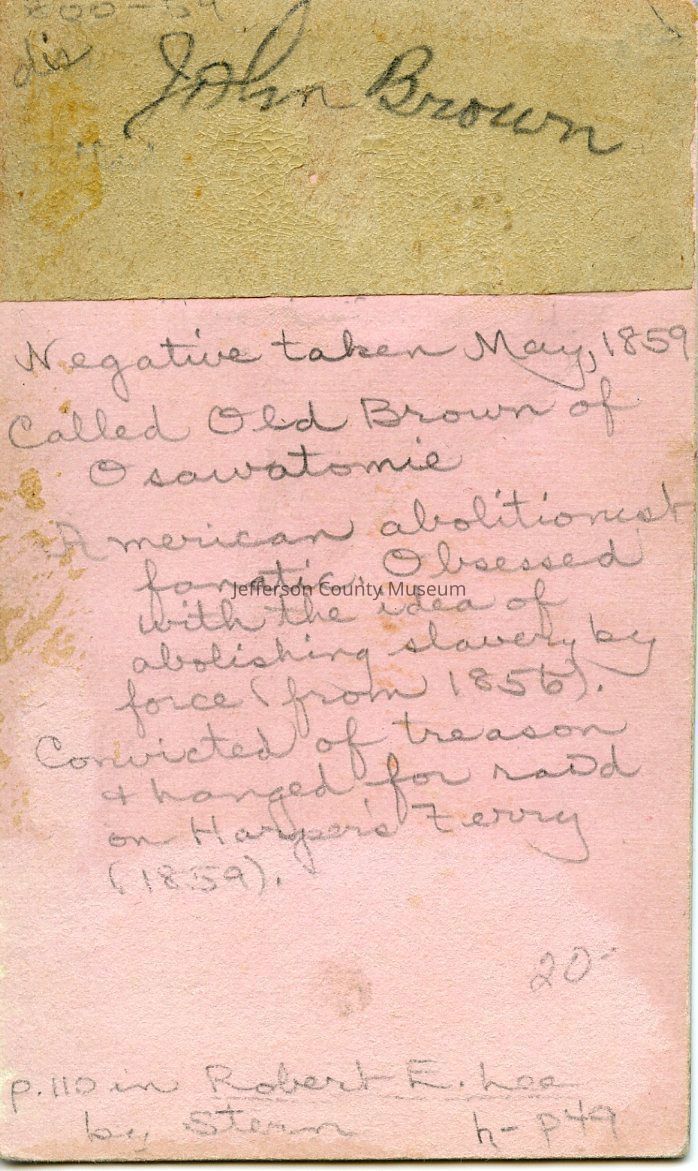 1800-59
dis
John Brown
Negative taken May, 1859
Called Old Brown of
Osawatomie
American abolitionist
fanatic. Obsessed
Jefferson County Museum
with the idea of
abolishing slavery by
force (from 1856).
Convicted of treason
& hanged for raid
on Harper's Ferry
(1859).
20-
p.110 in Robert E. Lee
by Stern h-p49